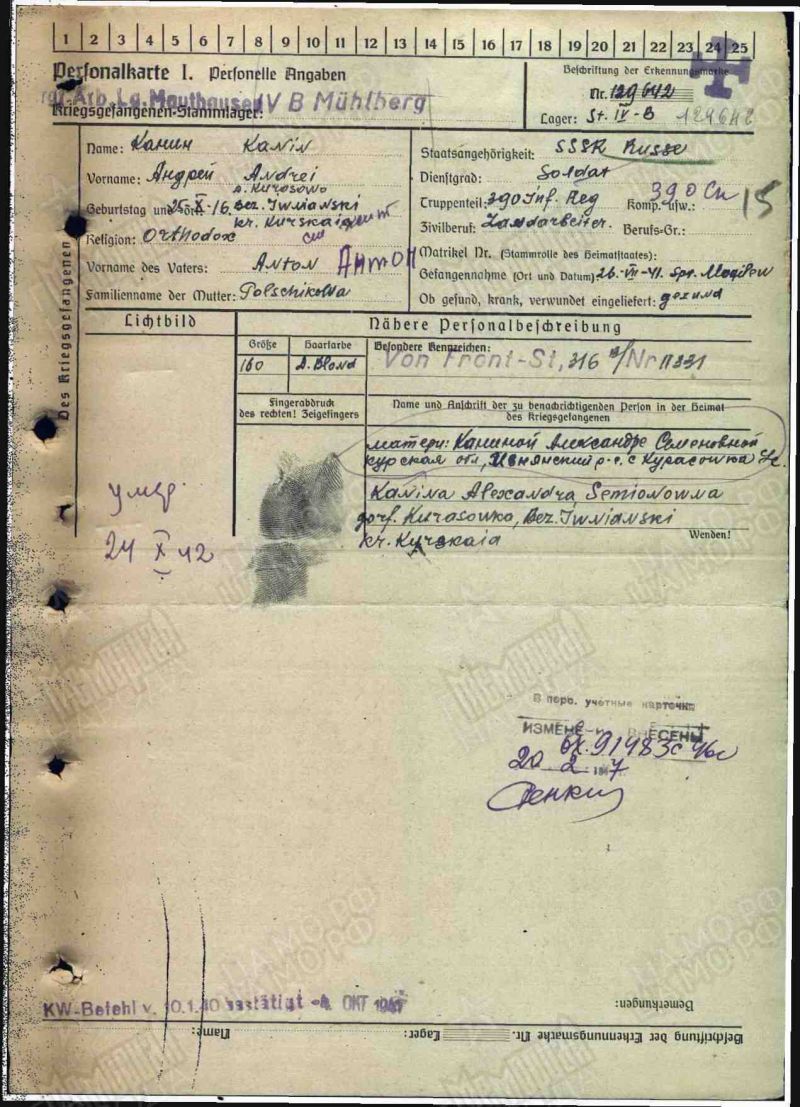 1 2 3 4 5 6 7 8 9 10 11 12 13 14 15 16 17 18 19 20 21 22 23 24 25
Personalkarte I. Personelle Angaben
Beschriftung der Erkennungsmarke
Nr. 129642
Arb. Lg. Mauthausen IV B Mühlberg
Kriegsgefangenen-Stammlager:
Lager: St. IV-B 129642
Name: Канин Kanin
Vorname: Андрей Andrei
Geburtstag und Ort: 25-X-16. d. Kurasowo Bez. Iwnianski kr. Kurskaia
Religion: Orthodox
Vorname des Vaters: Anton Антон
Familienname der Mutter: Polschikowa
Staatsangehörigkeit: SSSR Russe
Dienstgrad: Soldat
Truppenteil: 390 Inf. Reg Komp. usw.: 390 Сп 15
Zivilberuf: Landarbeiter. Berufs-Gr.:
Matrikel Nr. (Stammrolle des Heimatstaates):
Gefangennahme (Ort und Datum) 26-VII-41. Mogilew
Ob gesund, krank, verwundet eingeliefert: gesund
Des Kriegsgefangenen
Lichtbild
Nähere Personalbeschreibung
Größe Haarfarbe Besondere Kennzeichen:
160 d. Blond Von Front-St, 316 /Nr 11331
Fingerabdruck
des rechten! Zeigefingers
Name und Anschrift der zu benachrichtigenden Person in der Heimat
des Kriegsgefangenen
матери: Каниной Александре Семеновной
курская обл, Ивнянский р-е. с Курасовка
Kanina Alexandra Semionowna
dorf. Kurasowko, Bez. Iwnianski
kr. Kurskaia
Wenden!
умер.
24 X 42
В перс. учетные карточки
ИЗМЕНЕ ВНЕСЕНЫ
вх. 91483с 46г
20 2 7
KW-Befehl v. 10.1.40 bestätigt -4. OKT 194
Bemerkungen:
Beschriftung der Erkennungsmarke Nr. Lager: Name:
ПАМО РФ